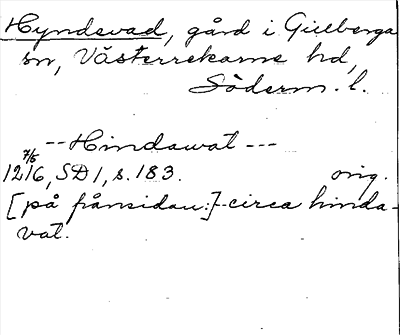 Hyndevad, gård i Gillberga
sn, Västerrekarne hd,
Söderm. l.
-- Hindawat ---
7/5
1216, SD 1, s. 183. orig.
[på frånsidan:]-circa hinda-
vat.